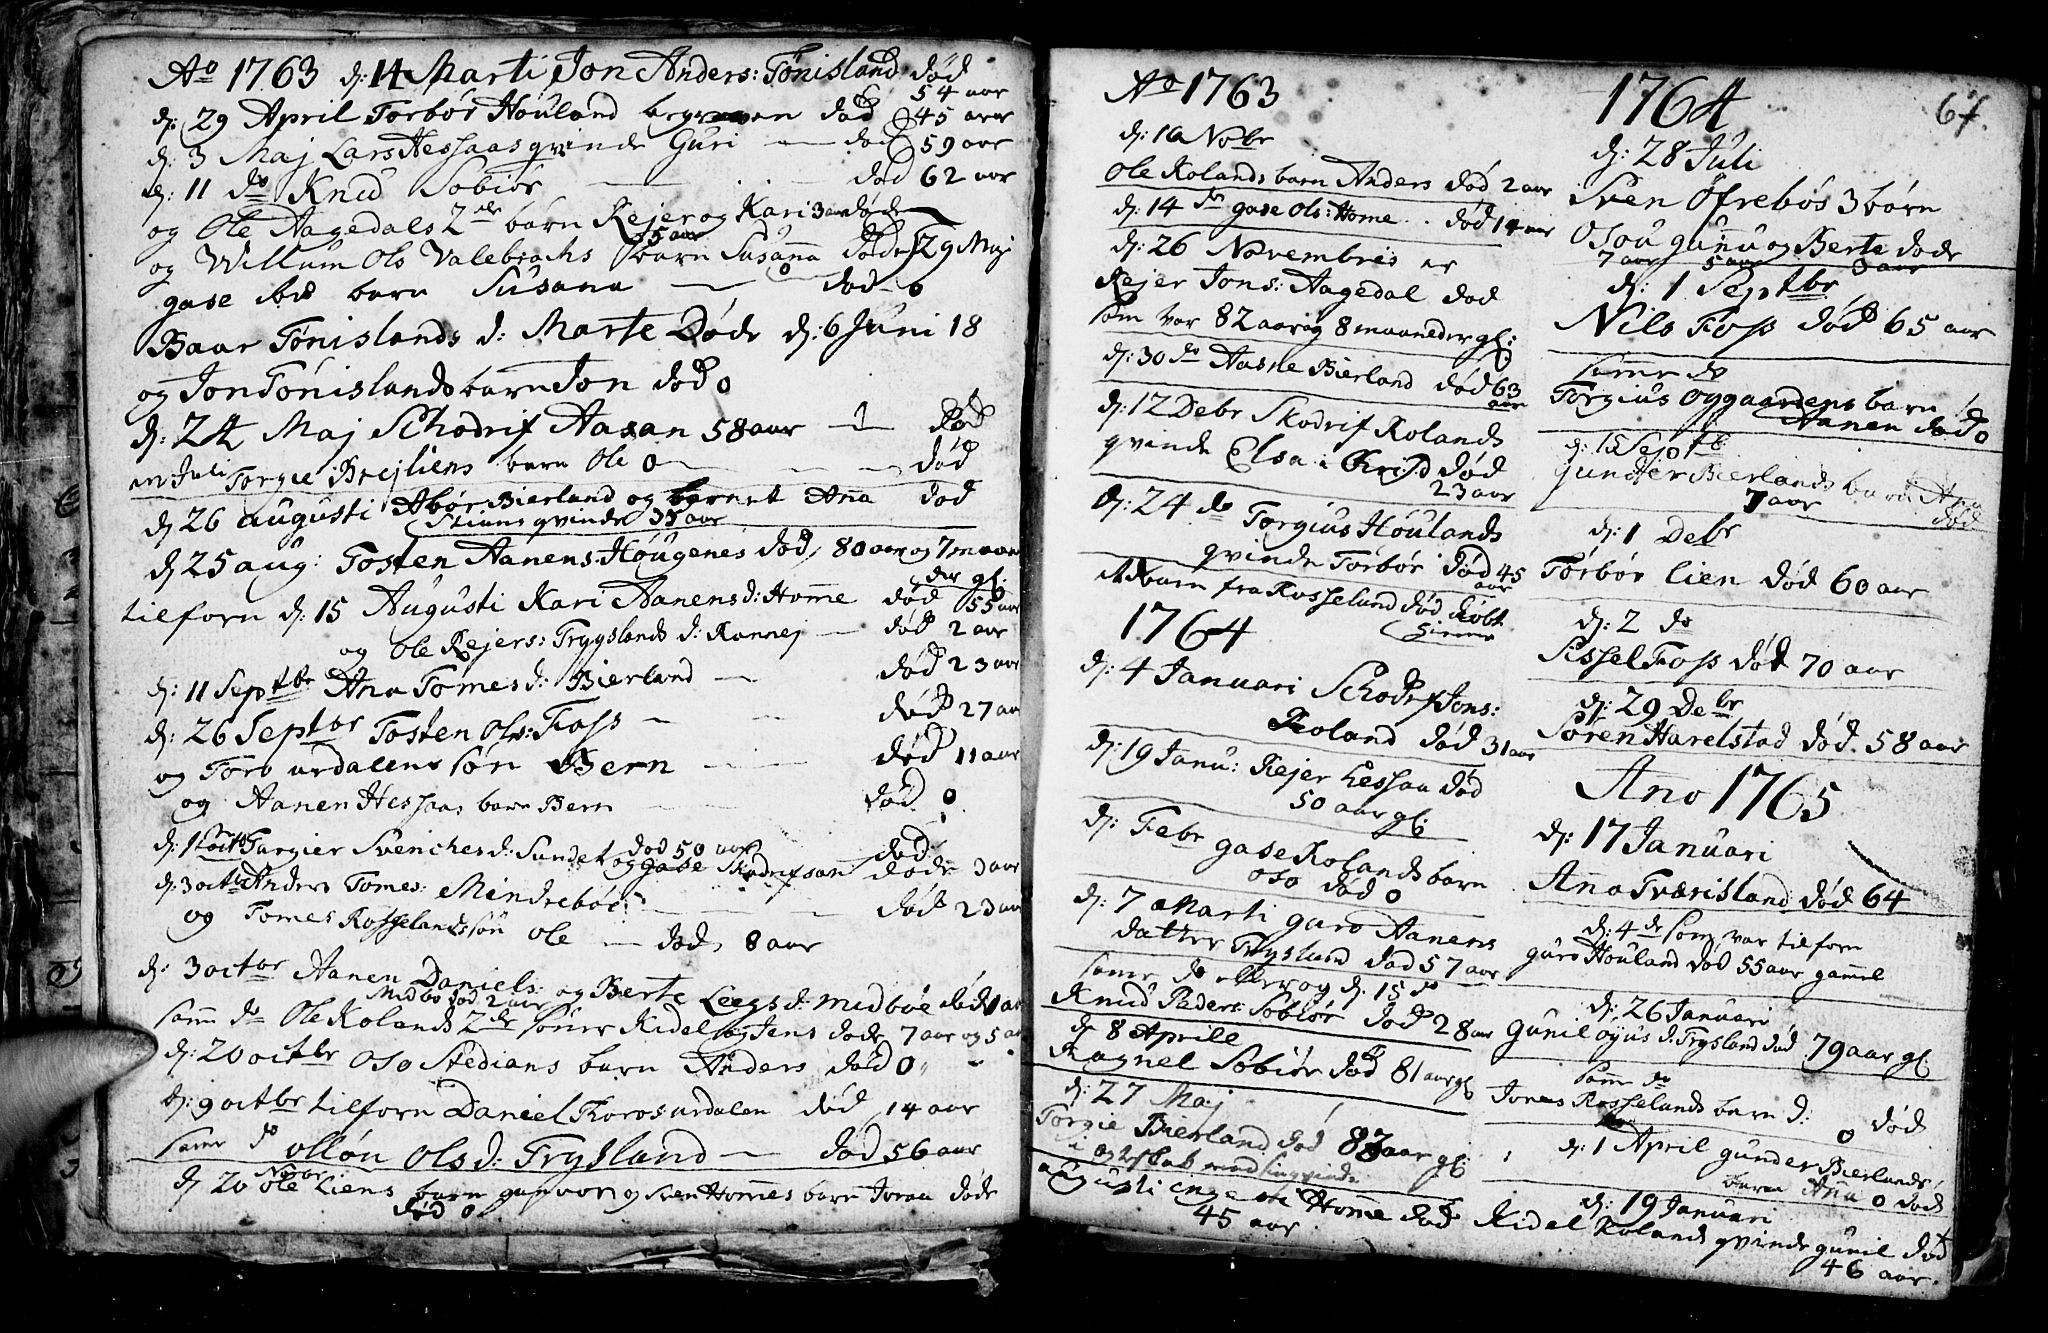 Ao 1763 d: 14 Marti Jon Anders: Tönisland död
54 aar
d: 29 April Torbör Houland begraven död 45 aar
d: 3 Maj Lars Hessaas qvinde Guri — död 59 aar
d: 11 do Knud Sobiör — död 62 aar
og Ole Aagedals 2de börn Rejer og Kari 3 aar döde
5 aar
og Willum Ols Valebrochs barn Susanna döde 29 Maj
0
gase ibid barn Susana — död 0
Baar Tönislands d: Marte Döde d: 6 Juni 18
og Jon Tönislands barn Jon död 0
d: 24 Maj Schodrif Aasan 58 aar — död
in Juli Torgie Brejliens barn Ole 0 — död
d 26 augusti Abör Bierland og barnet Anna död
Stians qvinde 35 aar
d 25 aug: Tosten Aanens: Hougenes död, 80 aar og 7 maane
der gl:
tilforn d: 15 Augusti Kari Aanens d: Homme död 55 aar
og Ole Rejers: Tryyslands d: Rannej — död 2 aar
d: 11 Septbr Ana Tomes d: Bierland — död 23 aar
d: 26 Septbr Tosten Ols: Foss — död 27 aar
og Toro urdalens sön Bern — död 11 aar
og Aanen Hessaas barn Bern — död 0
d: 1 octbr Torgier Svenches d: Sundet död 50 aar död
og gase Skodrifsön döde 3 aar
d: 3 octbr Anders Tomes: Mindreböe — död 23 aar
og Tomes Rosselands sön Ole — död 8 aar
d: 3 octbr Aanen Daniels: og Berte Leegs d: Midböe död 1 aar
Midbö död 2 aar
samme do Ole Rolands 2de sönner Kidel og Jens döde 7 aar og 5 a
d: 20 octbr Oso Stedians barn Anders död 0
d: 9 octbr tilforn Daniel Toros urdalen död 14 aar
samme do ollön Ols d: Trysland — död 56 aar
d 20 Novbr Ole Liens barn gunvor og Sven Hommes barn Joraa döde
död 0
Ao 1763
d: 10 Nobr
Ole Rolands barn Anders död 2 aar
d: 14 do gase Ols: Home död 14 aar
d: 26 Novembris er
Rejer Jons: Aagedal död
som var 82 aar og 8 maaneder gl:
d: 30 do Aasne Bierland död 63
aar
d: 12 Debr Skodrif Rolands
qvinde Elsa i död
23 aar
d: 24 do Torgius Houlands
qvinde Torbör död 45
aar
Et barn fra Rosseland död döbt
1764
d: 4 Januari Schodrif Jons:
Roland död 31 aar
d: 19 Janu: Rejer Hessaa död
50 aar gl:
d: Febr gase Rolands barn
oso död 0
d: 7 Marti guro Aanens
datter Trysland död 57 aar
samme do eller og d. 15 do
Knud Peders: Sobiör död 28 aar
d 8 Aprile
Ragnel Sobiör död 81 aar gl
d: 27 Maj
Torgie Bierland död 83 aar gl:
i Egteskab med sin qvinde
augusti Homme död
45 aar
1764
67.
d: 28 Juli
Sven Öfrebös 3 börn
Osou gunu og Berte döde
7 aar 5 aar 3 aar
d: 1 Septbr
Nils Foss död 65 aar
samme do
Torgius oggaardens barn
Aanen död 0
d: 15 Septb
Gunder Bierlands barn Ana
7 aar död
d: 1 Debr
Torbör Lien död 60 aar
d: 2 do
Sissel Foss död 70 aar
d: 29 Debr
Sören Harelstad död 58 aar
Ano 1765
d: 17 Januari
Ana Tværisland död 64
d: 4de som var tilforn
guro Houland död 55 aar gammel
d: 26 Januari
Gunil oyus d. Trysland död 79 aar gl:
samme do
Jones Rosselands barn d: 0 död
d: 1 April gunder Bierlands
barn Ana 0 död
d: 19 Januari
Kidel Rolands qvinde gunil död
46 aar.